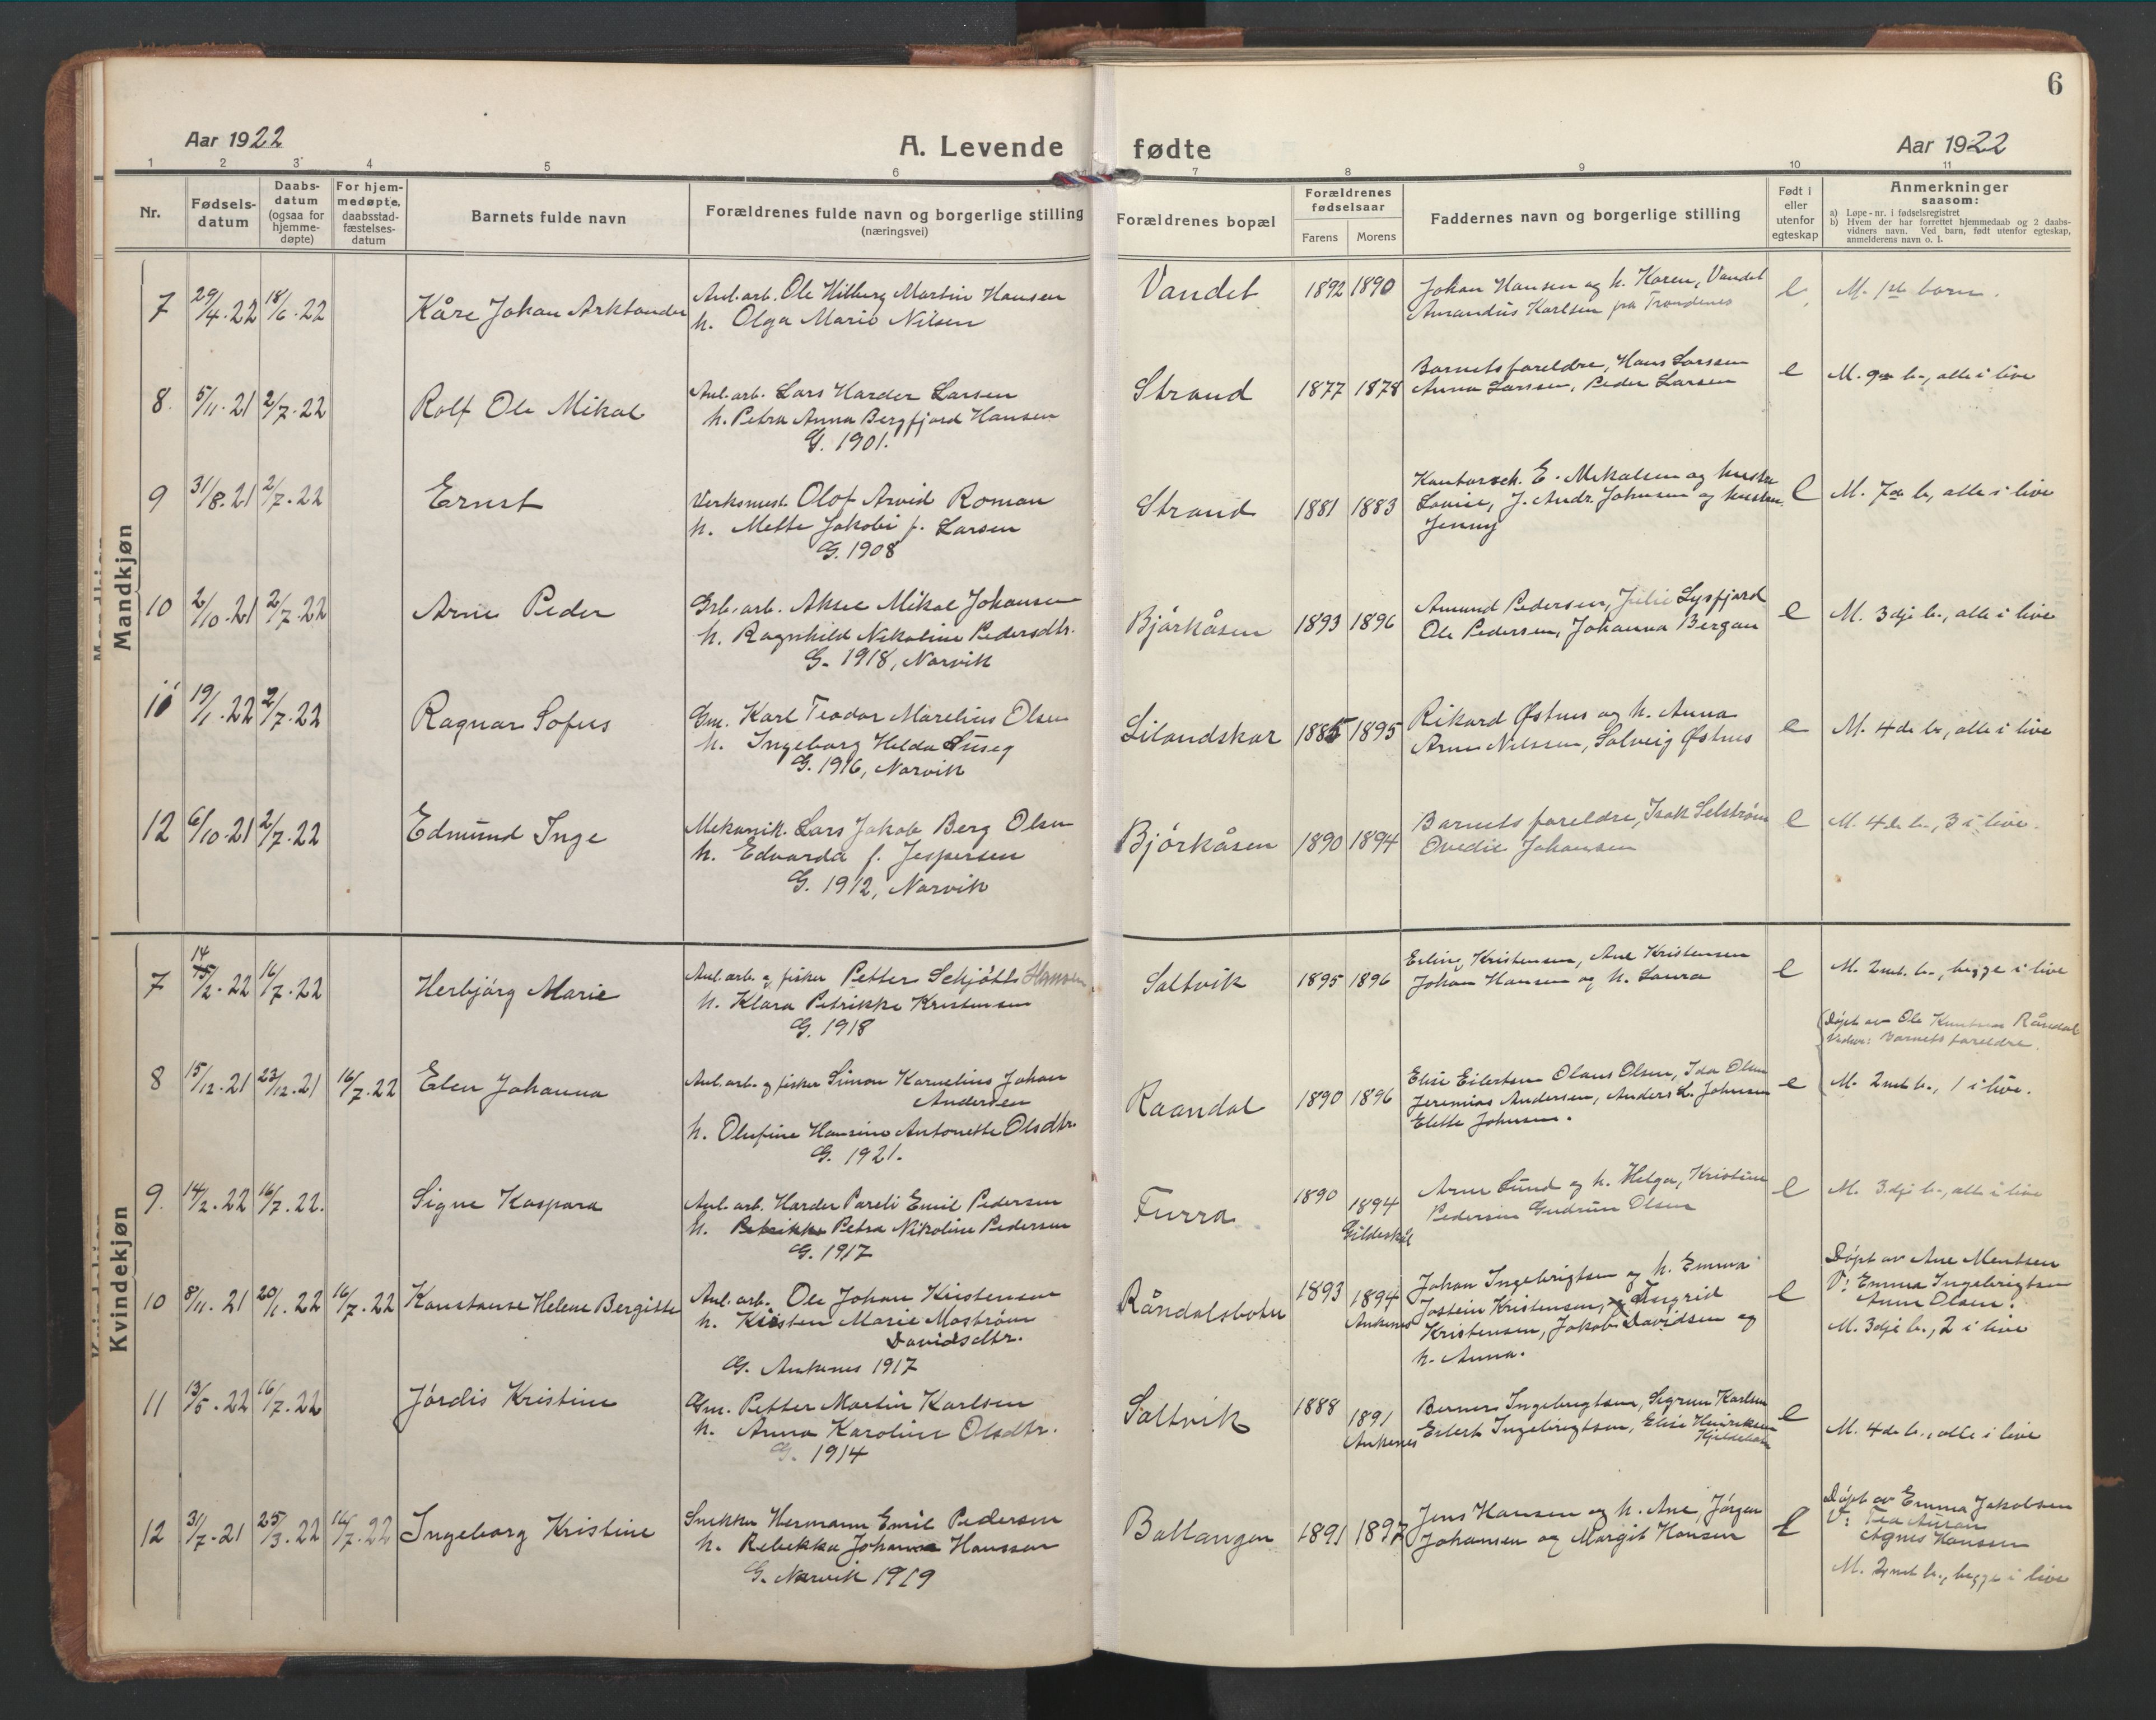 6
Aar 1922
A. Levende fødte
Aar 1922
1 2 3 4 5 6 7 8 9 10 11
Nr.
Fødsels-
datum
Daabs-
datum
(ogsaa for
hjemme-
døpte)
For hjem-
medøpte,
daabsstad-
fæstelses-
datum
Barnets fulde navn
Forældrenes fulde navn og borgerlige stilling
(næringsvei)
Forældrenes bopæl
Forældrenes
fødselsaar
Farens Morens
Faddernes navn og borgerlige stilling
Født i
eller
utenfor
egteskap
Anmerkninger
saasom:
a) Løpe-nr. i fødselsregistret
b) Hvem der har forrettet hjemmedaab og 2 daabs-
vidners navn. Ved barn, født utenfor egteskap,
anmelderens navn o. l.
Mandkjøn
7 29/4.22 18/6.22 Kåre Johan Arktander
Anl.arb. Ole Hilberg Martin Hansen
h. Olga Marie Nilsen
Vandet 1892 1890
Johan Hansen og h. Karen, Vandet
Amandus Karlsen fra Trondenes
e M. 1ste barn.
8. 5/11.21 2/7.22 Rolf Ole Mikal
Anl.arb. Lars Harder Larsen
h. Petra Anna Bergfjord Hansen
G. 1901.
Strand 1877 1878
Barnets foreldre, Hans Larssen
Anna Larssen, Peder Larsen
e M. 9de b., alle i live
9 31/8.21 2/7.22 Ernst
Verksmest. Olof Arvid Roman
h. Mette Jakobi f. Larsen
G. 1908
Strand 1881 1883
Kontorsch. E. Mikalsen og hustru
Lovise, J. Andr. Johnsen og hustru
Jenny
e M. 7de b, alle i live
10 2/10.21 2/7.22 Arne Peder
Grb.arb. Aksel Mikal Johansen
h. Ragnhild Nikoline Pedersdtr.
G. 1918, Narvik
Bjørkåsen 1893 1896
Amund Pedersen, Julie Lysfjord
Ole Pedersen, Johanna Bergan
e M. 3dje b., alle i live
11 19/1.22 2/7.22 Ragnar Sofus
Gm. Karl Teodor Marelius Olsen
h. Ingeborg Helda Suseg
G. 1916, Narvik
Lilandskar 1885 1895
Rikard Østnes og h. Anna
Arne Nilssen, Solveig Østnes
e M. 4de b., alle i live
12 6/10.21 2/7.22 Edmund Inge
Mekanik. Lars Jakob Berg Olsen
h. Edvarda f. Jespersen
G. 1912, Narvik
Bjørkåsen 1890 1894
Barnets foreldre, Isak Selström
Ovedie Johansen
e M. 4de b., 3 i live.
Kvindekjøn
7 14/2.22 16/7.22 Herbjørg Marie
Anl.arb. og fisker Petter Schjøtts Hansen
h. Klara Petrikke Kristensen
G. 1918
Saltvik 1895 1896
Erling Kristensen, Ane Kristensen
Johan Hansen og h. Laura
e M. 2net. b., begge i live
8 15/12.21 23/12.21 16/7.22 Elen Johanna
Anl.arb. og fisker Simon Kornelius Johan
Andersen
h. Olufine Hansine Antonette Olsdtr.
G. 1921.
Raandal 1890 1896
Elise Eilertsen Olaus Olsen, Ida Olsen
Jeremias Andersen, Anders L. Johnsen
Elette Johnsen.
e
Døpt av Ole Knutsen Råndal
Vidner: Barnets foreldre.
M. 2net b., 1 i live.
9. 14/2.22 16/7.22. Signe Kaspara
Anl.arb. Harder Pareli Emil Pedersen
h. Petrikke Petra Nikoline Pedersen
G. 1917
Furra 1890 1894
Gildeskål
Arne Lund og h. Helga, Kristine
Pedersen Gudrun Olsen
e M. 3dje b., alle i live
10 8/11.21 20/1.22 16/7.22 Konstanse Helene Bergitte
Anl.arb. Ole Johan Kristensen
h. Kirsten Marie Moström
Davidsdtr.
G. Ankenes 1917
Råndalsbotn 1893 1894
Ankenes
Johan Ingebrigtsen og h. Emma
Jostein Kristensen, Ingrid
Kristensen, Jakob Davidsen og
h. Anna.
e
Døpt av Ane Mentsen
V: Emma Ingebrigtsen
Anne Olsen.
M. 3dje b., 2 i live
11 13/5.22 16/7.22 Jørdis Kristine
Gm. Petter Martin Karlsen
h. Anna Karoline Olsdtr.
G. 1914
Saltvik 1888 1891
Ankenes
Berner Ingebrigtsen, Sigrun Karlsen
Eilert Ingebrigtsen, Elise Henriksen
e M. 4de b., alle i live
12 31/7.21 25/3.22 16/7.22 Ingeborg Kristine
Snekker Hermann Emil Pedersen
h. Rebekka Johanna Hanssen
G. Narvik 1919
Ballangen 1891 1897
Jens Hansen og h. Ane, Jørgen
Johansen og Margit Hansen
e
Døpt av Emma Jakobsen
V: Tea
Agnes Hanssen
M. 2net b., begge i live